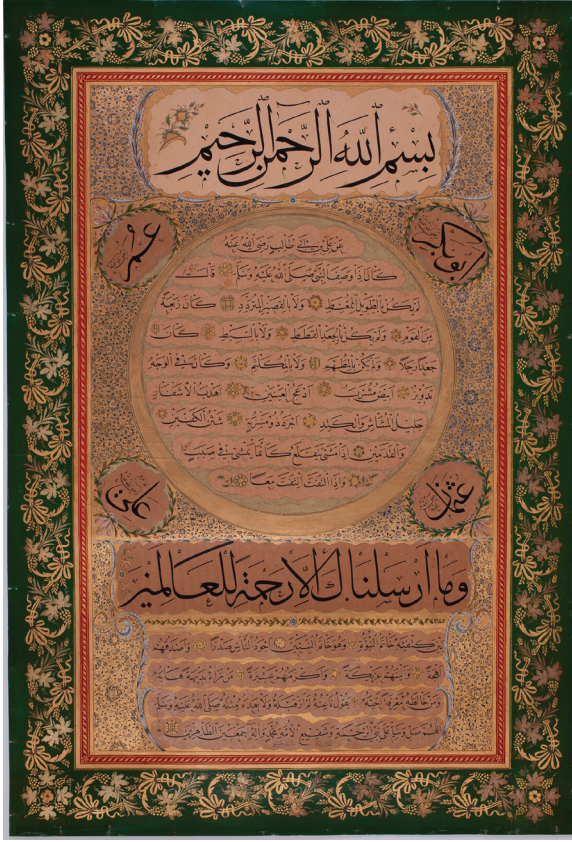 بسم الله الرحمن الرحيم
ابو بكر
عمر
عن علي بن ابي طالب رضي الله عنه
كان اذا وصف النبي صلى الله عليه وسلم قال
لم يكن بالطويل الممغط ولا بالقصير المتردد كان ربعة
من القوم ولم يكن بالجعد القطط ولا بالسبط كان
جعدا رجلا ولم يكن بالمطهم ولا بالمكلثم وكان في الوجه
تدوير ابيض مشرب ادعج العينين اهدب الاشفار
جليل المشاش والكتد اجرد ذو مسربة شثن الكفين
والقدمين اذا مشى تقلع كانما يمشي في صبب
واذا التفت التفت معا
عثمان
علي
وما ارسلناك الا رحمة للعالمين
بين كتفيه خاتم النبوة وهو خاتم النبيين اجود الناس صدرا واصدقهم
لهجة والينهم عريكة واكرمهم عشيرة من رآه بديهة هابه
ومن خالطه معرفة احبه يقول ناعته لم ار قبله ولا بعده مثله صلى الله عليه وسلم
اللهم صل وسلم على نبي الرحمة وشفيع الامة محمد واله اجمعين الطاهرين